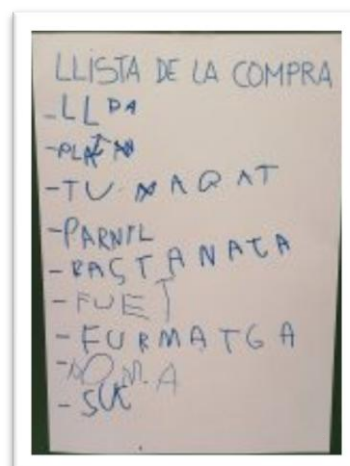 LLISTA DE LA COMPRA
- LL PA
- PLATAN
- TU MAQAT
- PARNIL
- PASTANATA
- FUET
- FURMATGA
- POMA
- SUC